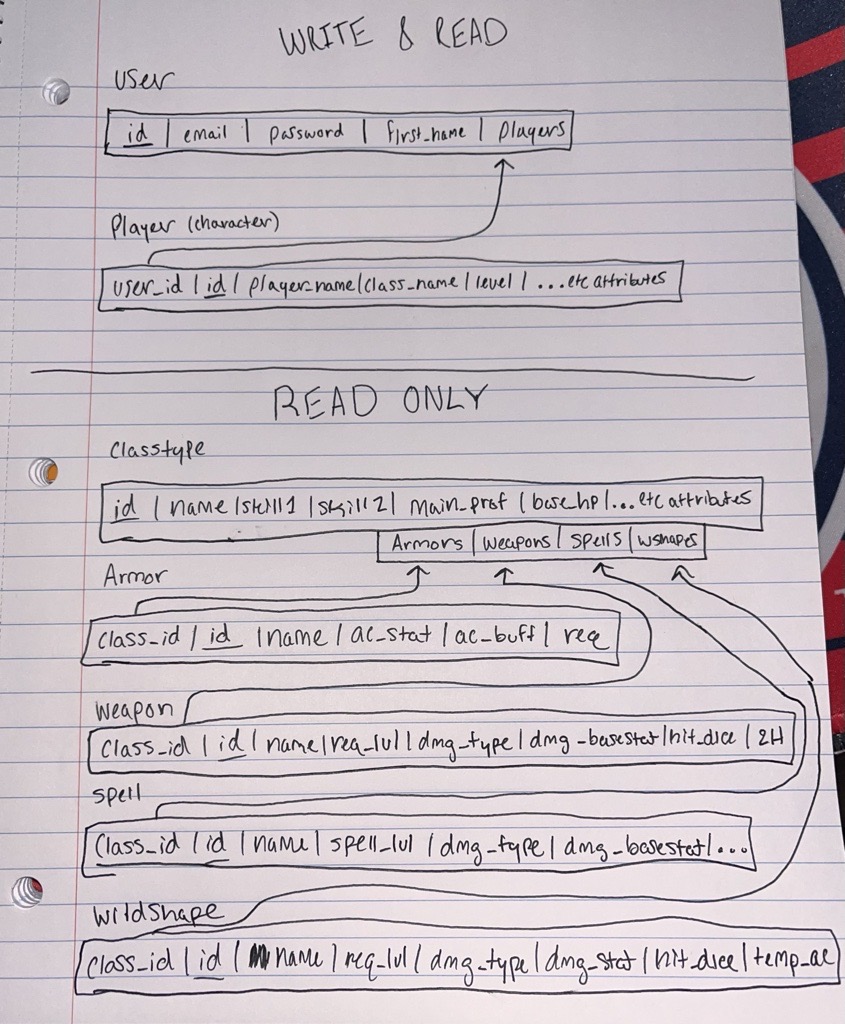 WRITE & READ
User
id | email | password | first_name | players
Player (character)
user_id | id | player_name | class_name | level | ...etc attributes
READ ONLY
Classtype
id | name | skill1 | skill2 | main_prof | base_hp | ... etc attributes
Armors | weapons | spells | wshapes
Armor
class_id | id | name | ac_stat | ac_buff | req
Weapon
Class_id | id | name | req_lvl | dmg_type | dmg_basestat | hit_dice | 2H
Spell
Class_id | id | name | spell_lvl | dmg_type | dmg_basestat | ...
Wildshape
Class_id | id | name | req_lvl | dmg_type | dmg_stat | hit_dice | temp_ac